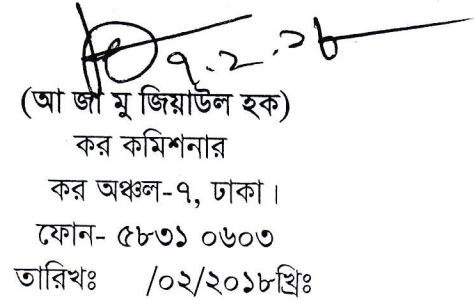 (আ জা মু জিয়াউল হক)
কর কমিশনার
কর অঞ্চল-৭, ঢাকা।
ফোন- ৫৮৩১ ০৬০৩
তারিখঃ /০২/২০১৮খ্রিঃ